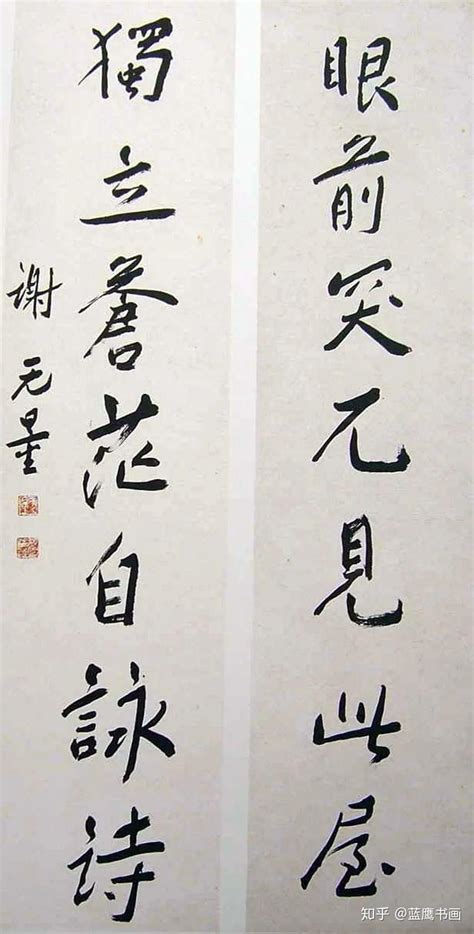 眼前突兀見此屋
獨立蒼茫自詠詩
谢无量
知乎 @蓝鹰书画